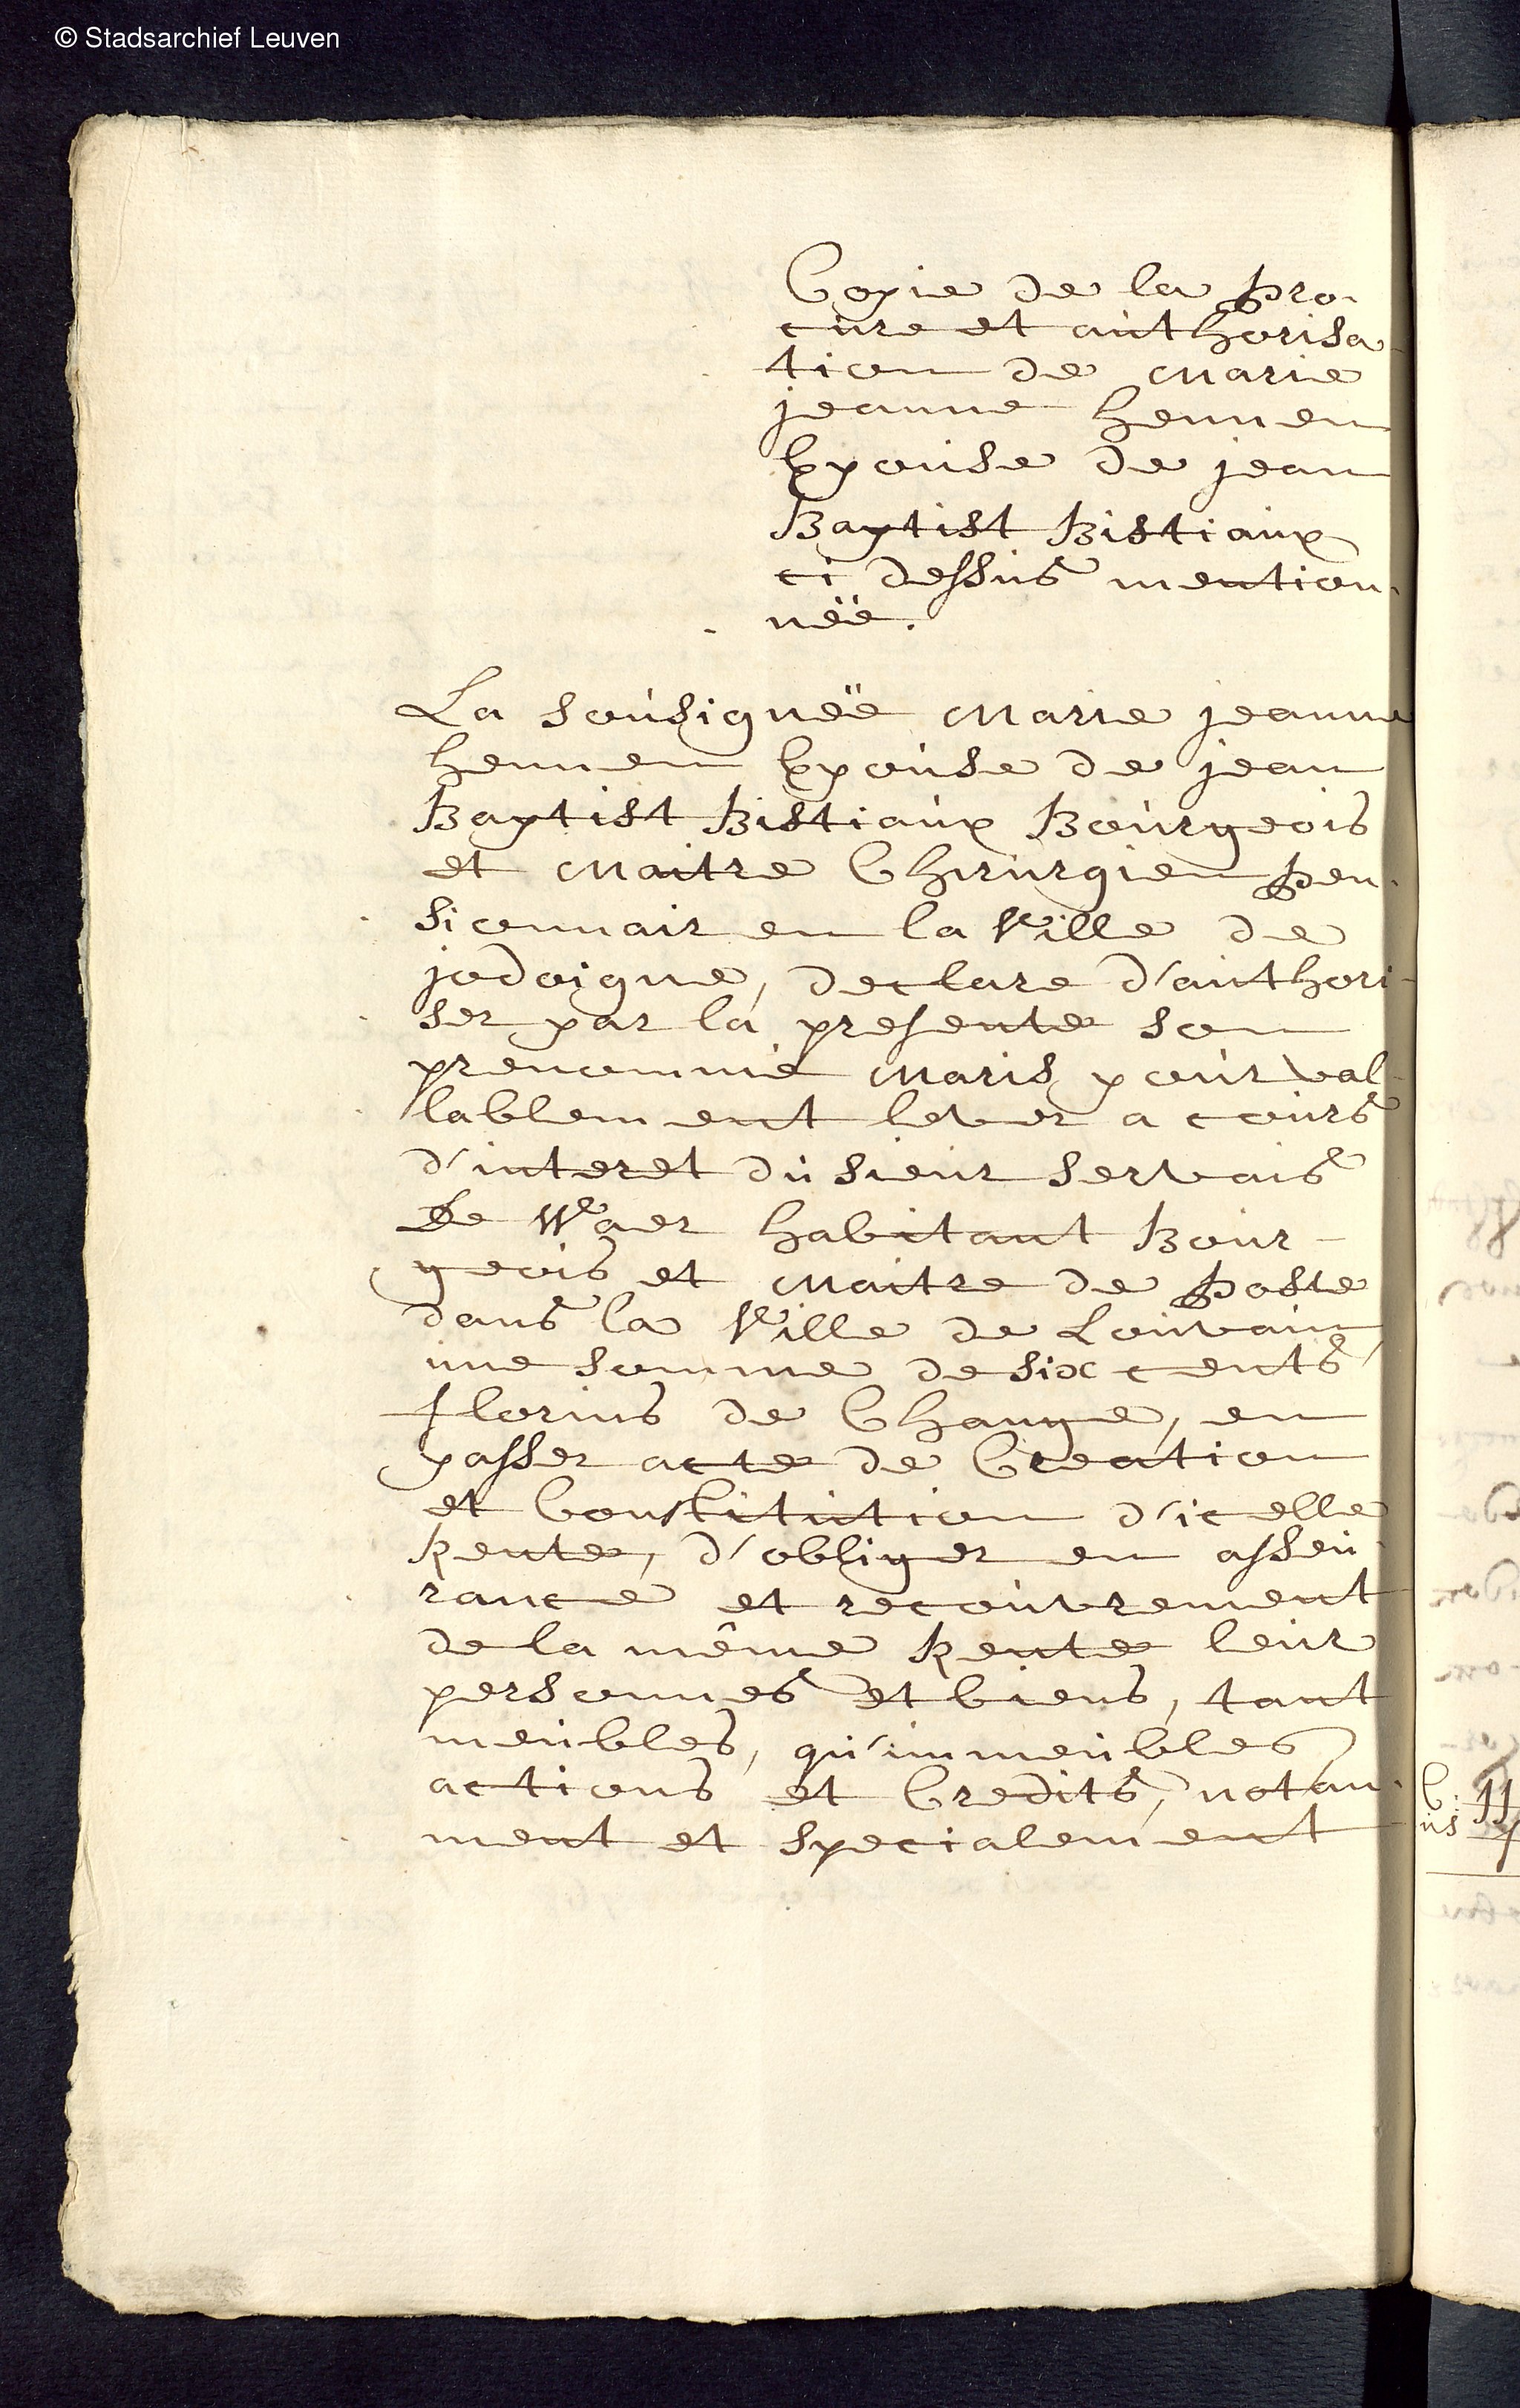 © Stadsarchief Leuven
Copie de la pro-
cure et authorisa-
tion de Marie
jeanne hennen
Epouse de jean
Baptist Bistiaux
ci dessus mention-
nëe.
La sousignëe Marie jeanne
hennen Epouse de jean
Baptist Bistiaux Bourgeois
et Maitre Chirurgien pen-
sionnair en la Ville de
jodoigne, declare d'authori-
ser par la presente son
prenommé Maris pour val-
lablement lever a cours
d'interet du sieur servais
De Waer habitant Bour-
geois et Maitre de poste
dans la Ville de Louvain
une somme de six cents
florins de Change, en
passer acte de Creation
et Constitution d'icelle
Rente, d'obliger en asseu-
rance et recouvrement
de la même Rente leur
personnes et biens, tant
meubles, qu'immeubles
actions et Credits, notam-
ment et specialement